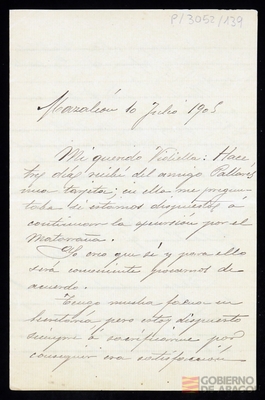 P/3053/139
Mazaleón 10 Julio 1905
Mi querido Vidiella: Hace
tres días recibí del amigo Pallarés
una tarjeta; en ella me pregun-
taba si estamos dispuestos á
continuar la excursión por el
Matarraña.
Yo creo que sí y para ello
será conveniente ponernos de
acuerdo.
Tengo mucha faena en
Secretaría, pero estoy dispuesto
siempre á sacrificarme por
conseguir esa satisfacción
GOBIERNO
DE ARAGON